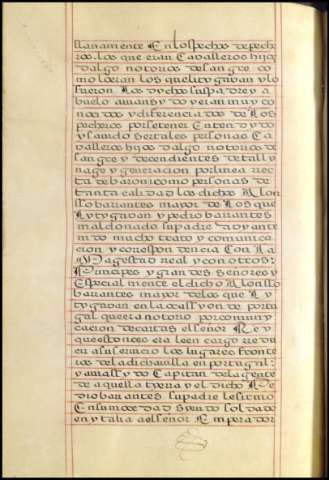 llanamente En los pechos de peche
ros. los que eran Cavalleros hijos
dalgo notorios de sangre co
mo lo eran los que litigavan y lo
fueron. Los dichos su padre y a
buelo avian sydo y eran muy co
nocidos y diferenciados de los
pecheros por se tener Entendydo
y savido ser tales personas Ca
valleros hijos dalgo notorios de
sangre y decendientes de tal ly
nage y generacion por linea rec
ta de baron i como personas de
tanta calidad los dichos Alon
sso barantes mayor de los que
lytygavan y pedro barantes
maldonado su padre avian te
nido mucho trato y comunica
cion y correspondencia Con La
Magestad real y con otros
Principes y grandes señores y
Especialmente el dicho Alonsso
barantes mayor de los que ly
tygavan en la ocassyon de portu
gal que era notorio por comuny
cacion de cartas el señor Rey
que estonces era le encargo redu
cir a su servicio los lugares fronte
ros de la dicha villa en portugal:
y avia ssydo Capitan de la gente
de aquella tyerra y el dicho Pe
dro barantes su padre lesitimo
En su mocedad syendo soldado
en ytalia del señor Emperador